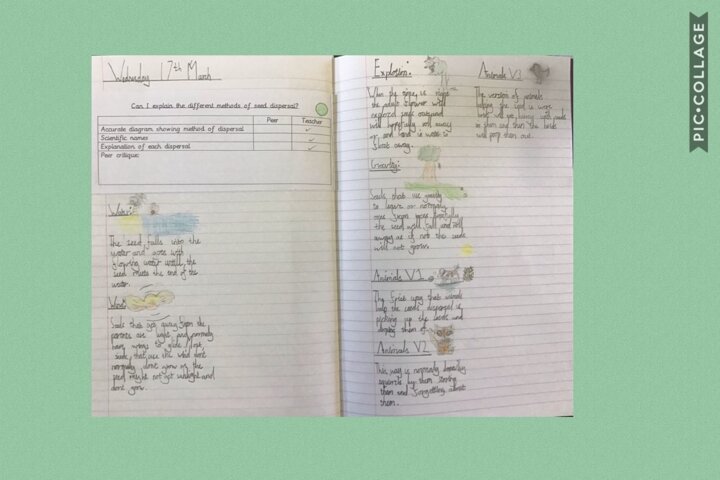 Wednesday 17th March
Can I explain the different methods of seed dispersal?
Peer Teacher
Accurate diagram showing method of dispersal
Scientific names
Explanation of each dispersal
Peer critique:
Water:
The seed falls into the
water and
water untill the
seed meets the end of the
water.
Wind:
Seeds that get away from the
parents are light and normaly
have wings to glide
seeds that use the wind dont
normaly dont grow as the
seed might not get
dont grow.
Explosion:
When the is
the
explode
will hopefully away
or
away.
Gravity:
Seeds that use gravity
to
the seed will fall and roll
away as if not the seeds
will not grow.
Animals V1
The first way that animals
help the seeds dispersal is
picking up the seeds and
them
Animals V2
This way is normaly done by
squirrels by them storing
them and forgetting about
them.
Animals V3
The version of animals
helping the seed is were
birds with seeds
in them and then the birds
will poop them out.
PIC•COLLAGE